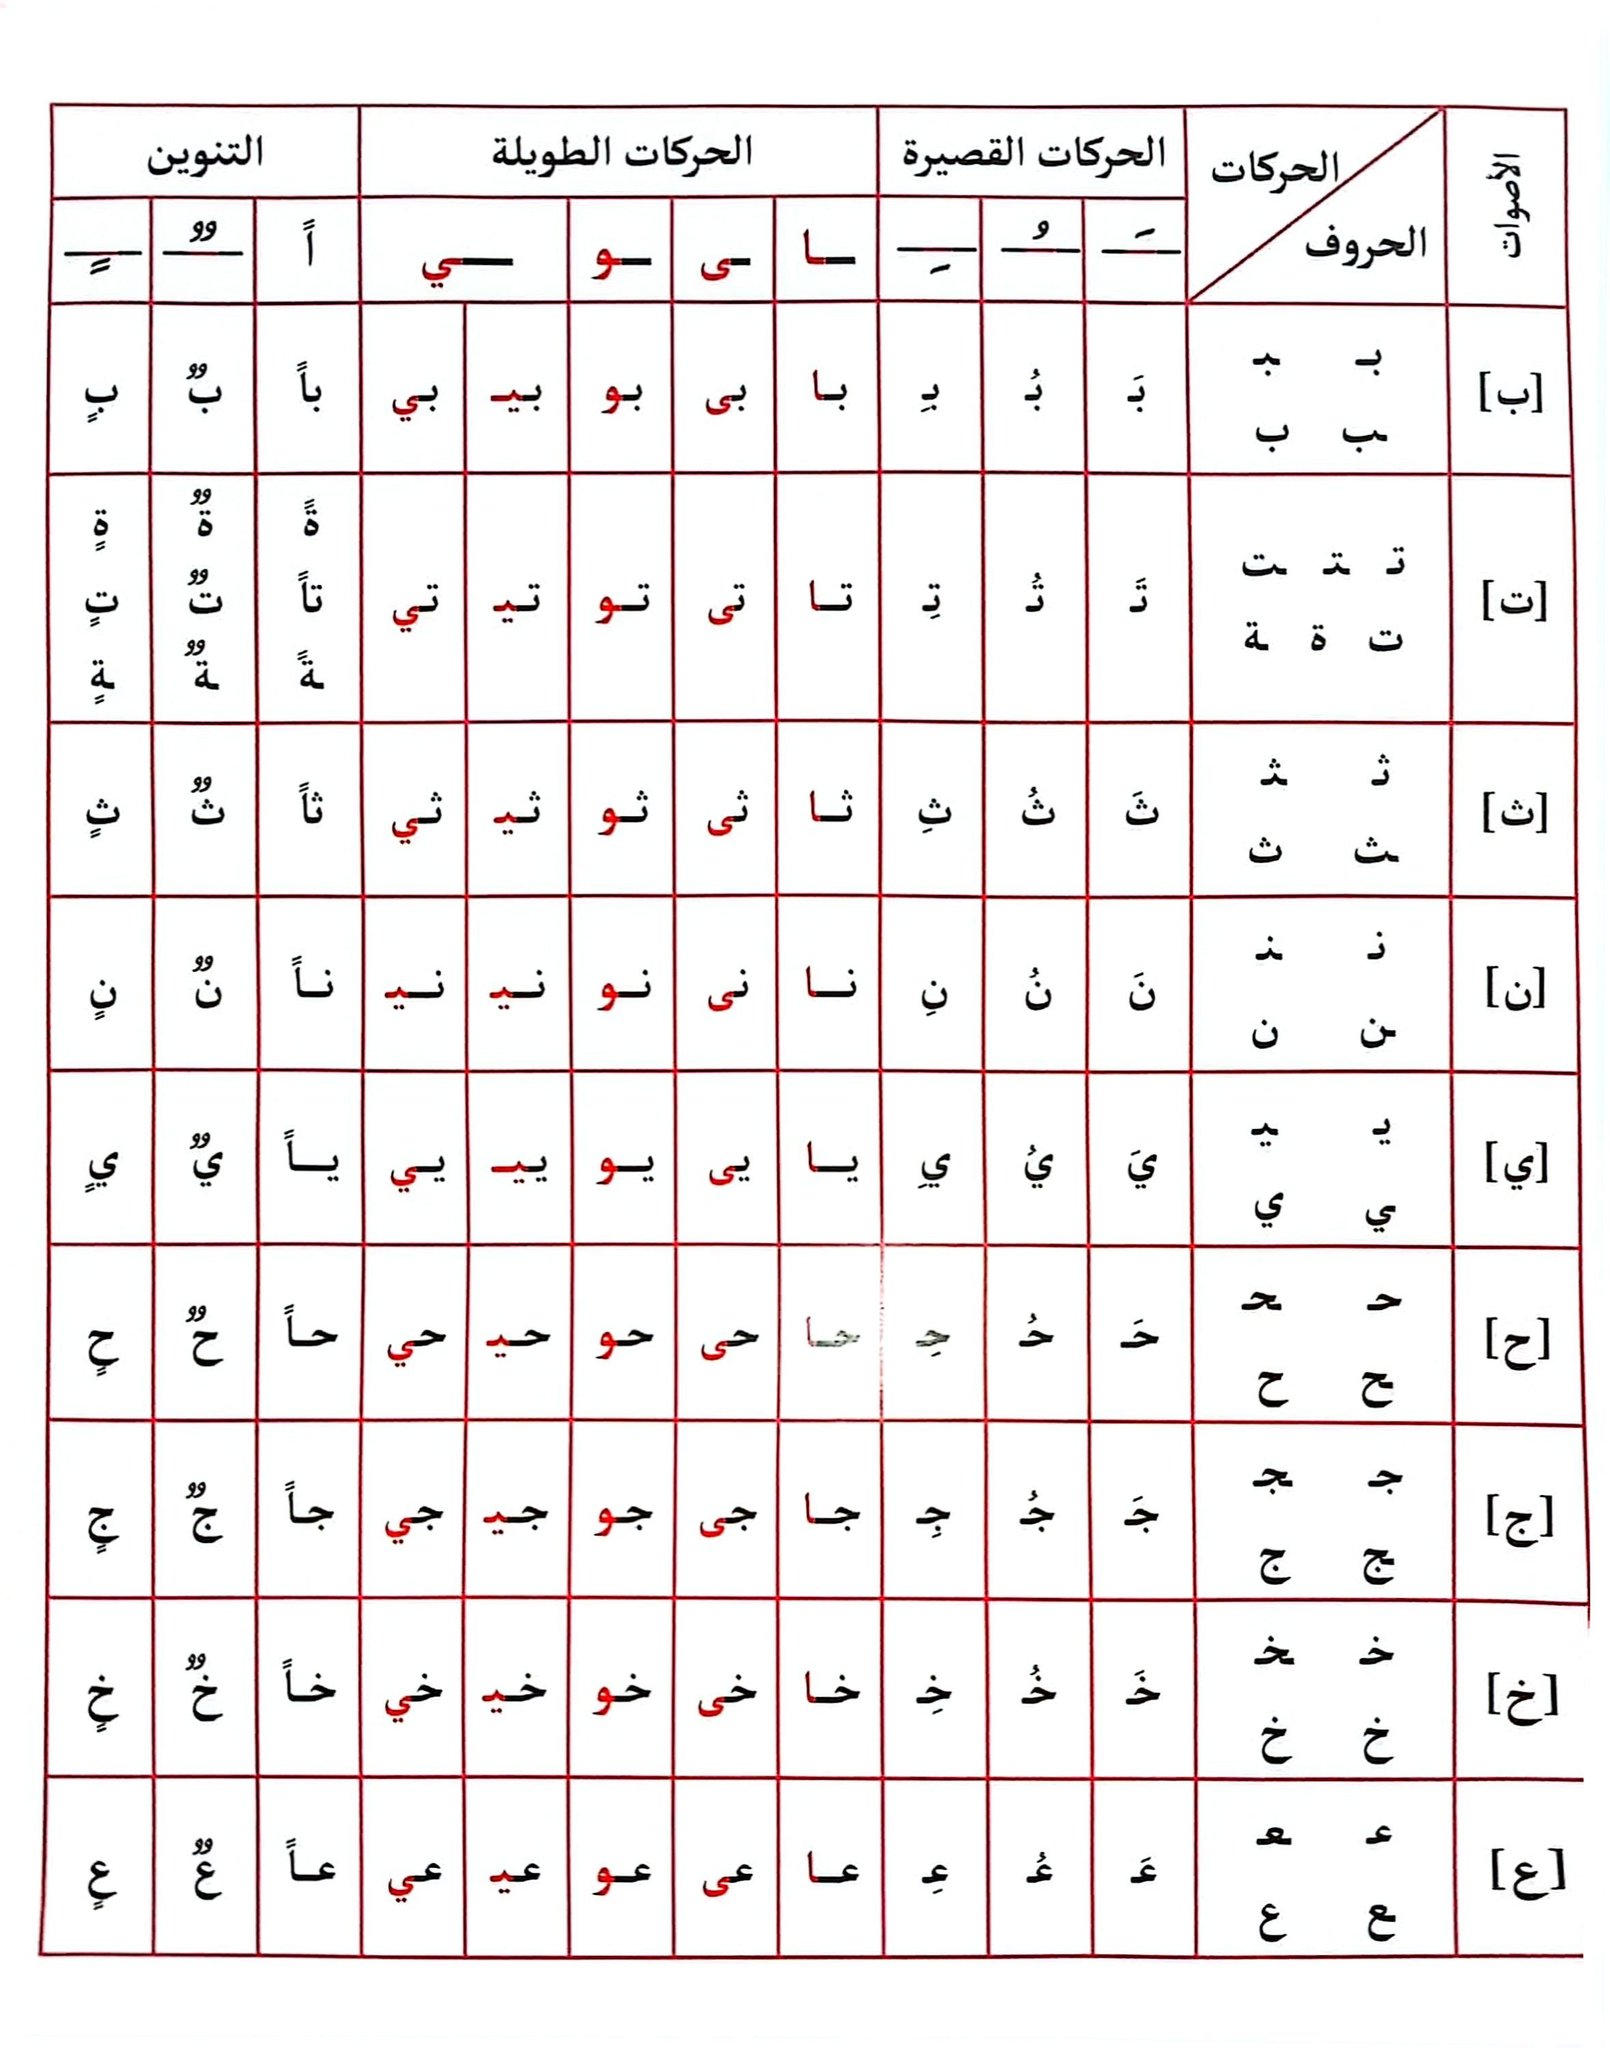 الأصوات الحركات الحروف الحركات القصيرة الحركات الطويلة التنوين
ـَ ـُ ـِ ـا ـى ـو ـي اً ـٌ ـٍ
[ب] بـ ـبـ بَـ بُـ بِـ بـا بى بو بيـ بي باً بٌ بٍ
ـب ب
[ت] تـ ـتـ ـت تَـ تُـ تِـ تـا تى تـو تيـ تي ةً ةٌ ةٍ
ت ة ـة تاً تٌ تٍ
ـةً ـةٌ ـةٍ
[ث] ثـ ـثـ ثَ ثُ ثِ ثـا ثى ثـو ثيـ ثي ثاً ثٌ ثٍ
ـث ث
[ن] نـ ـنـ نَ نُ نِ نـا نى نـو نـيـ نـيـ نـاً نٌ نٍ
ـن ن
[ي] يـ ـيـ يَ يُ يِ يـا يى يـو ييـ يـي يـاً يٌ يٍ
ـي ي
[ح] حـ ـحـ حَـ حُـ حِـ حـا حى حو حيـ حي حـاً حٌ حٍ
ـح ح
[ج] جـ ـجـ جَـ جُـ جِـ جـا جى جو جيـ جي جـاً جٌ جٍ
ـج ج
[خ] خـ ـخـ خَـ خُـ خِـ خـا خى خو خيـ خي خـاً خٌ خٍ
خ خ
[ع] عـ ـعـ عَـ عُـ عِـ عـا عى عـو عيـ عي عـاً عٌ عٍ
ـع ع